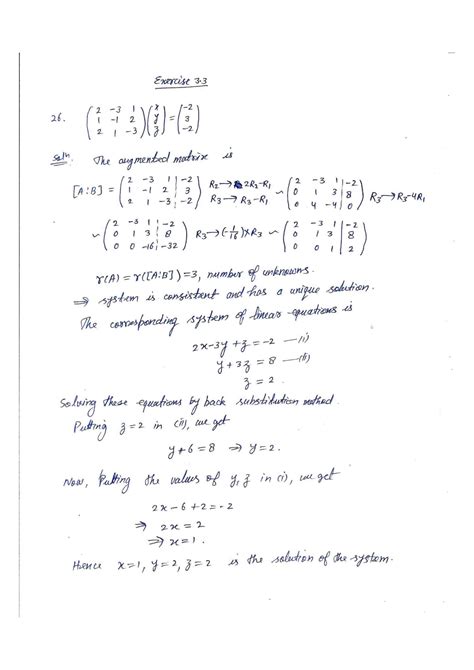 Exercise 3.3
26. (2 -3 1; 1 -1 2; 2 1 -3)(x; y; z) = (-2; 3; -2)
Soln. The augmented matrix is
[A:B] = (2 -3 1 | -2; 1 -1 2 | 3; 2 1 -3 | -2) R2→2R2-R1 R3→R3-R1 ~ (2 -3 1 | -2; 0 1 3 | 8; 0 4 -4 | 0) R3→R3-4R1
~ (2 -3 1 | -2; 0 1 3 | 8; 0 0 -16 | -32) R3→(-1/16)×R3 ~ (2 -3 1 | -2; 0 1 3 | 8; 0 0 1 | 2)
r(A) = r([A:B]) = 3, number of unknowns.
⇒ system is consistent and has a unique solution.
The corresponding system of linear equations is
2x-3y+z = -2 —(i)
y+3z = 8 —(ii)
z = 2.
Solving these equations by back substitution method.
Putting z = 2 in (ii), we get
y+6 = 8 ⇒ y = 2.
Now, Putting the values of y, z in (i), we get
2x-6+2 = -2
⇒ 2x = 2
⇒ x = 1.
Hence x=1, y=2, z=2 is the solution of the system.